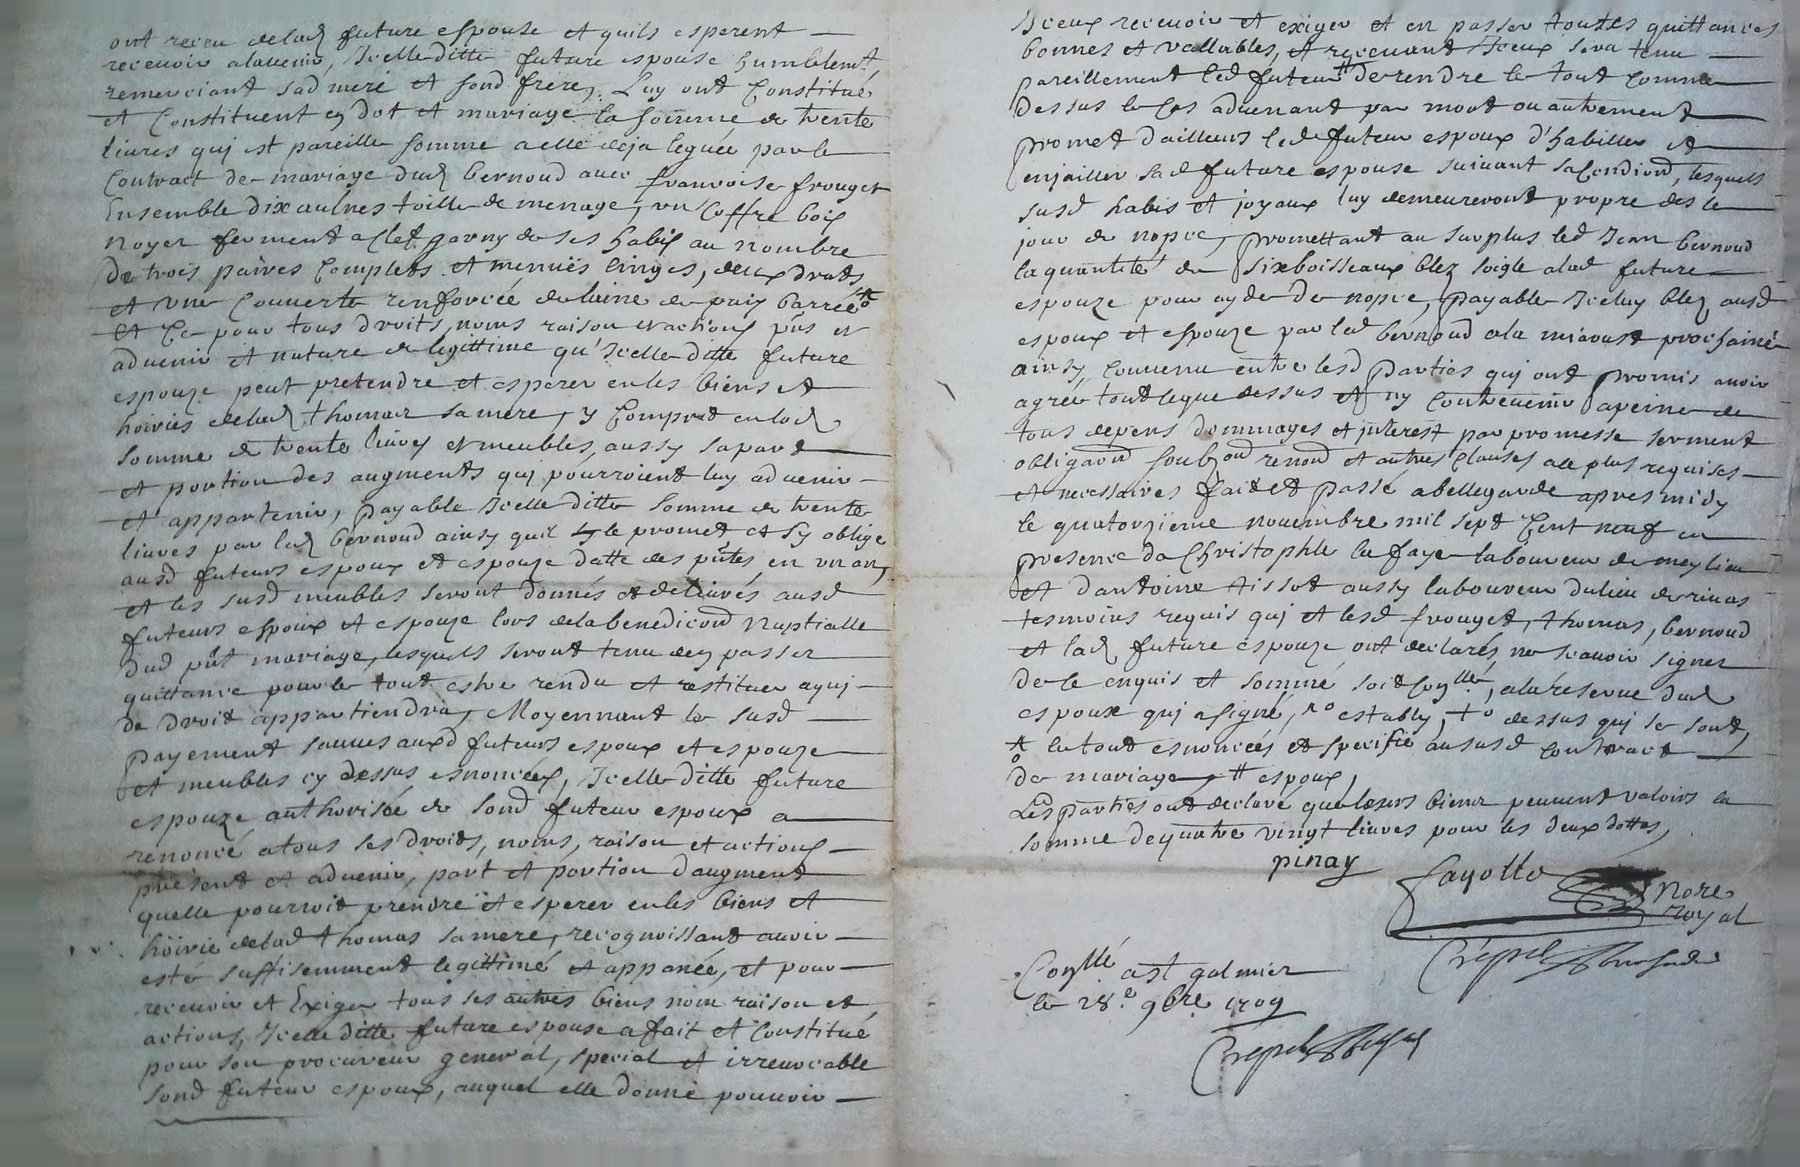 ont receu delad future espouse et quils esperent
recevoir aladvenir, Icelle ditte future espouse humblemt
remerciant sad mere et sond frere, Luy ont Constitué
et Constituent en dot et mariage la somme de trente
livres qui est pareille somme a elle deja leguée par le
Contract de mariage dud bernoud avec francoise frouget
Ensemble dix aulnes toille de menage, un Coffre bois
noyer ferment a clef garny de ses habis au nombre
de trois paires Complets et menuës linges, deux draps
et une Couverte renforcée de laine de paix barrée
et Ce pour tous droits noms raison et actions pñs et
advenir et nature de legittime qu'Icelle ditte future
espouze peut pretendre et esperer en les biens et
hoiries delad thomas sa mere, y Compris en lad
somme de trente livres et meubles, aussy sa part
et portion des augments qui pourroient luy advenir
et appartenir, payable Icelle ditte somme de trente
livres par led bernoud ainsy quil le promet et s'y oblige
ausd futeurs espoux et espouze datte des pñtes en un an,
et les susd meubles seront donnés et delivrés ausd
futeurs espoux et espouze lors de la benediction Nuptialle
dud pñt mariage, lesquels seront tenu den passer
quittance pour le tout estre rendu et restituer a qui
de droit appartiendra, Moyennant le susd
payement sauves auxd futeurs espoux et espouze
et meubles cy dessus esnoncées, Icelle ditte future
espouze authorisée de sond futeur espoux a
renoncé a tous ses droits, noms, raison et actions
présent et advenir, part et portion daugment
quelle pourroit prendre et esperer en les biens et
hoirie delad thomas sa mere, recognoissant avoir
esté suffisemment legittimé et appanée, et pour
recevoir et Exiger tous ses autres biens nom raison et
actions, Icelle ditte future espouse a fait et Constitué
pour son procureur general, special et irrevocable
sond futeur espoux, auquel elle donne pouvoir
Iceux recevoir et exiger et en passer toutes quittances
bonnes et vallables, et recevant Iceux sera tenu
pareillement led futeur # de rendre le tout comme
dessus le Cas advenant par mort ou autrement
promet d'ailleurs led futeur espoux d'habiller et
enjailler sad future espouse suivant sa Condiond, lesquels
susd habis et joyaux luy demeureront propre des le
jour de nopce, promettant au surplus led Jean bernoud
la quantité de six boisseaux blez soigle alad future
espouze pour ayde de nopce, payable Iceluy blez ausd
espoux et espouze par led bernoud a la miaoust prochaine
ainsy Convenu entre lesd parties qui ont promis avoir
agree tout le que dessus et ny Contrevenir a peine de
tous depens dommages et interest par promesse serment
obligaond soubzond renond et autres Clauses a ce plus requises
et necessaires fait et passé a bellegarde apres midy
le quatorzieme novembre mil sept Cent neuf en
presence de Christophle la faye laboureur de meylieu
et d'antoine tissot aussy laboureur du lieu de rivas
tesmoins requis qui et lesd frouget, thomas, bernoud
et lad future espouze ont declarés ne scavoir signer
de le enquis et sommé soit Conllé, ala reserve dud
espoux qui a signé, no estably, to dessus qui se sont,
le tout esnoncées et specifié au susd contract
de mariage, # espoux,
Les parties ont declaré que leurs biens peuvent valoirs la
somme de quatre vingt livres pour les deux dottes,
pinay
fayolle nore
royal
Conllé a st galmier
le 28e 9bre 1709